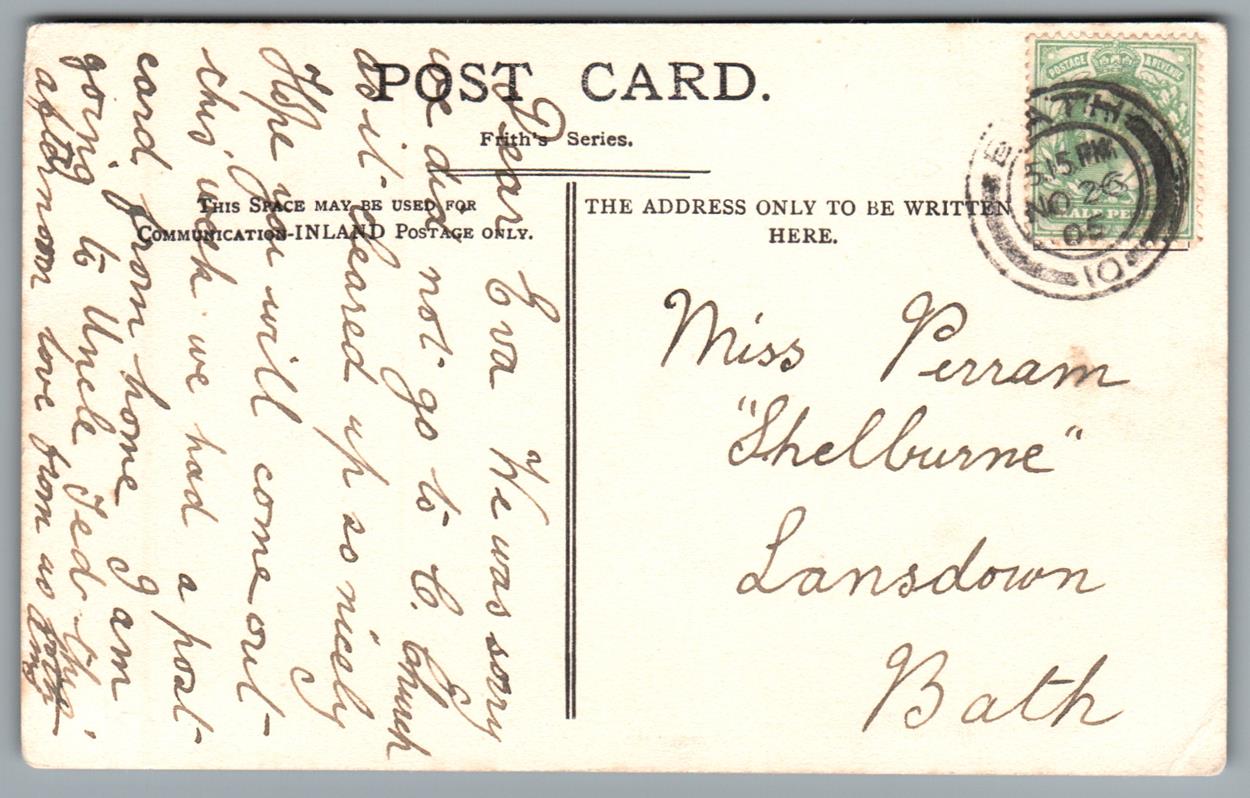 POST CARD.
Frith's Series.
THIS SPACE MAY BE USED FOR
COMMUNICATION-INLAND POSTAGE ONLY.
THE ADDRESS ONLY TO BE WRITTEN
HERE.
POSTAGE & REVENUE
HALF PE
BATH
5.15 PM
NO 26
05
Miss Perram
"Shelburne"
Lansdown
Bath
Dear Eva We was sorry
we did not go to C. Church
as it cleared up so nicely
Hope you will come out
this week we had a post
card from home I am
going to Uncle Ted this
afternoon love from us both
Amy